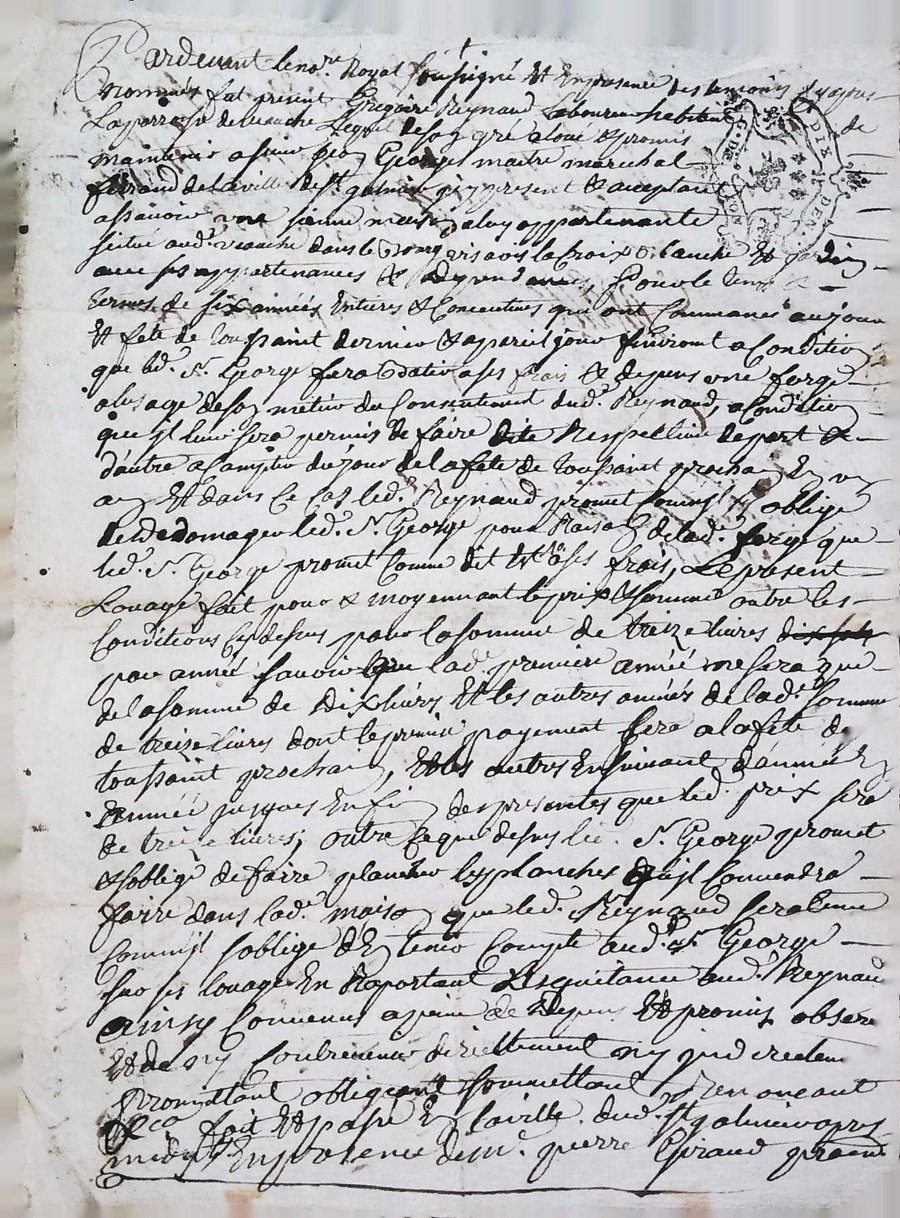 Pardevant le nore Royal soussigné Et En presence des temoins cy apres
nommés fut present Gregoire Reynaud Laboureur habitant de
La parroisse de veauche Lequel de son gré a loué & promis
maintenir a sieur Georges maitre marechal
ferrand de la ville de St galmier icy present & acceptant
assavoir une sienne maison a luy appartenante
scitué aud. veauche dans le Bourg vis avis la Croix & Et Jardin
avec ses appartenances & dependances, pour le tems &
termes de six années Entieres & Consecutives qui ont Commancé au jour
Et fete de toussaint dernier & a pareil jour finiront a Condition
que led. Sr. George fera Batir a ses frais & depens une forge
a l'usage de son metier du Consentement dud. Reynaud, a Condition
que il leur sera permis de faire dite Respective de part &
d'autre a Compter du jour de la fete de toussaint prochain En un
an Et dans ce Cas led. Reynaud promet Comme il s'y oblige
de dedomager led. Sr. George pour Raison de lad. forge que
led. Sr. George promet Comme dit Est a ses frais, Le present
Louage fait pour & moyennant le prix & somme outre les
Conditions Cy dessus pour la somme de treize livres dix sols
par année savoir que lad. premiere année ne sera que
de la somme de Dix livres Et les autres années de lad. somme
de treize livres dont le premier payement sera a la fete de
toussaint prochain, Et les autres Ensuivant d'année En
année jusques En fin des presentes que led. prix sera
de treize livres, outre Ce que dessus led. Sr. George promet
& s'oblige de faire plancher les planches qu'il Conviendra
faire dans lad. maison que led. Reynaud sera tenu
Comme il s'oblige d'En tenir Compte aud. Sr George
sur ses louages En Raportant quittance aud. Reynaud
ainsy Convenus a peine de Depens Et promis observer
Et de n'y Contrevenir directement ny indirectem
Promettant obligeant soummettant Renoncant
&ca fait Et passé En la ville dud. St galmier apres
midy En presence de me. pierre Giraud